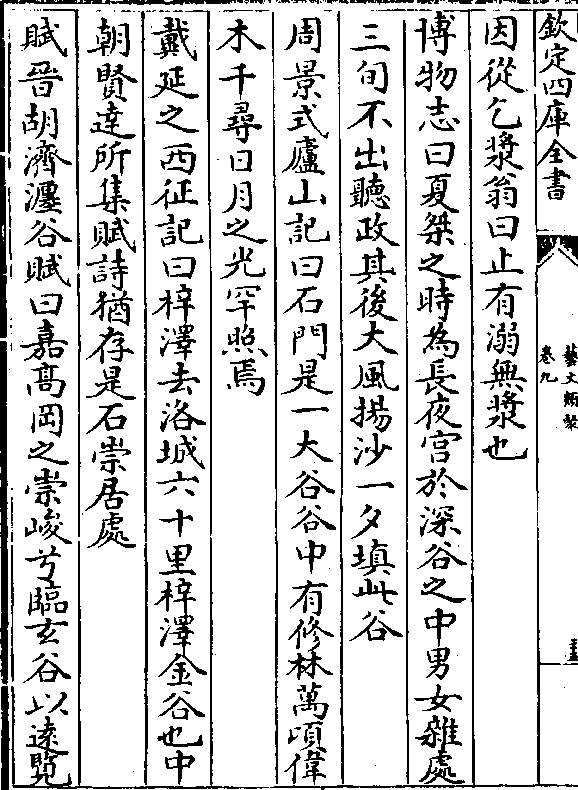 欽定四庫全書
藝文類聚
卷九
因從乞漿翁曰止有溺無漿也
博物志曰夏桀之時為長夜宮於深谷之中男女雜處
三旬不出聽政其後大風揚沙一夕填此谷
周景式廬山記曰石門是一大谷谷中有修林萬頃偉
木千尋日月之光罕照焉
戴延之西征記曰梓澤去洛城六十里梓澤金谷也中
朝賢達所集賦詩猶存是石崇居處
賦晉胡濟瀍谷賦曰嘉髙岡之崇峻兮臨玄谷以遠覽